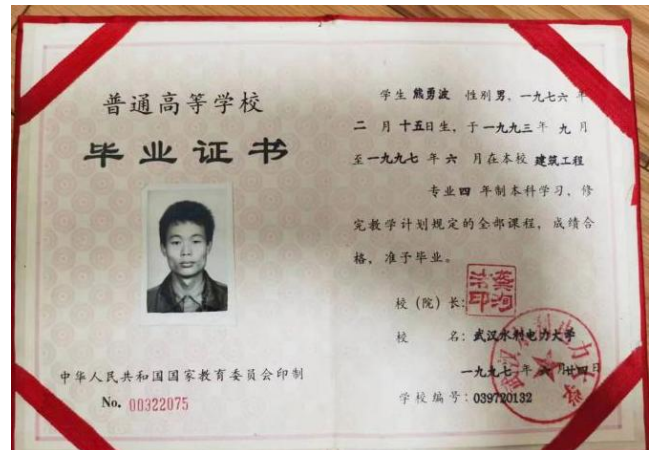 普通高等学校
毕业证书
中华人民共和国国家教育委员会印制
No. 00322075
学生 熊勇波 性别 男、一九七六 年
二 月 十五日生，于 一九九三 年 九 月
至 一九九七 年 六 月在本校 建筑工程
专业 四 年制本科学习，修
完教学计划规定的全部课程，成绩合
格，准予毕业。
校（院）长：
校 名：武汉水利电力大学
一九九七 年 六 月 廿四 日
学校编号：039720132